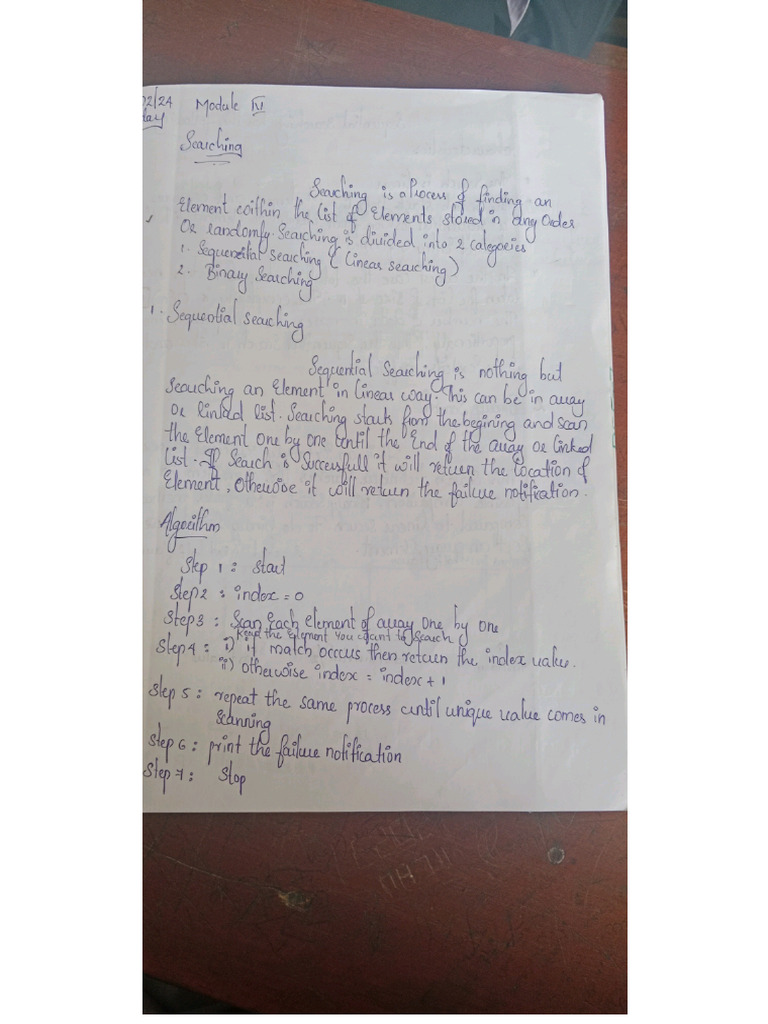 02/24 Module IV
day
Searching
Searching is a Process of finding an
Element within the list of Elements stored in any Order
Or randomly. Searching is divided into 2 categories
1. Sequential searching (Linear searching)
2. Binary Searching
1. Sequential searching
Sequential Searching is nothing but
Searching an Element in Linear way. This can be in array
or linked list. Searching starts from the begining and scan
the Element one by one until the End of the array or linked
List. If Search is Successfull it will return the location of
Element, otherwise it will return the failure notification.
Algorithm
Step 1: Start
Step 2: index = 0
Step 3: Scan Each element of array one by one
Read the Element you want to Search
Step 4: i) if match occcus then return the index value.
ii) otherwise index = index + 1
Step 5: repeat the same process until unique value comes in
Scanning
Step 6: print the failure notification
Step 7: Stop